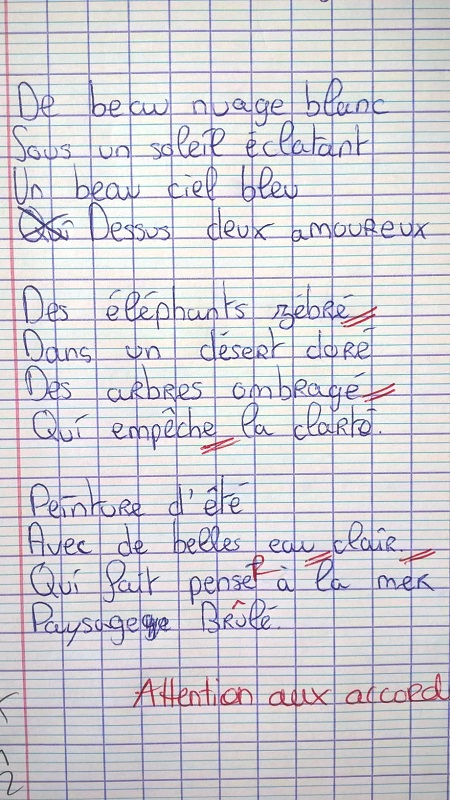 De beau nuage blanc
Sous un soleil éclatant
Un beau ciel bleu
Dessus deux amoureux
Des éléphants zébré
Dans un désert doré
Des arbres ombragé
Qui empêche la clarté.
Peinture d'été
Avec de belles eau clair.
Qui fait penser à la mer
Paysage Brûlé.
Attention aux accord